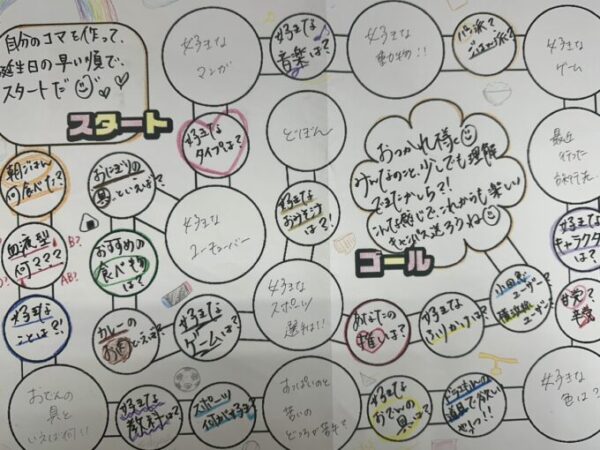 自分のコマを作って、
誕生日の早い順で、
スタートだ
スタート
朝ごはん
何食べた?
血液型
何???
B?
AB?
好きな
ことは?!
おでんの
具と
いえば何!!
好きな
教科は?
スポーツ
何が好き?
すっぱいのと
苦いの
どっちが苦手?
好きな
おでんの
具は?
ドラえもんの
道具で欲しい
やつ!!
好きな
色は?
甘党?
辛党
好きな
キャラクター
は?
最近
行った
旅行先
好きな
ゲーム
パン派?
ごはん派?
好きな
動物!!
好きな
音楽は?
好きな
マンガ
好きな
タイプは?
おにぎりの
具といえば?
おすすめの
食べもの
は?
カレーの
お肉といえば?
好きな
ユーチューバー
好きな
ゲームは?
どぼん
好きな
おみそしる
は?
好きな
スポーツ
選手は!!
あなたの
推しは?
好きな
ふりかけは?
小田急
ユーザー?
横浜線
ユーザー?
おつかれ様です
みんなのこと、少しでも理解
できたかしら?!
こんな感じで、これからも楽しい
キャンパス送ろうね
ゴール